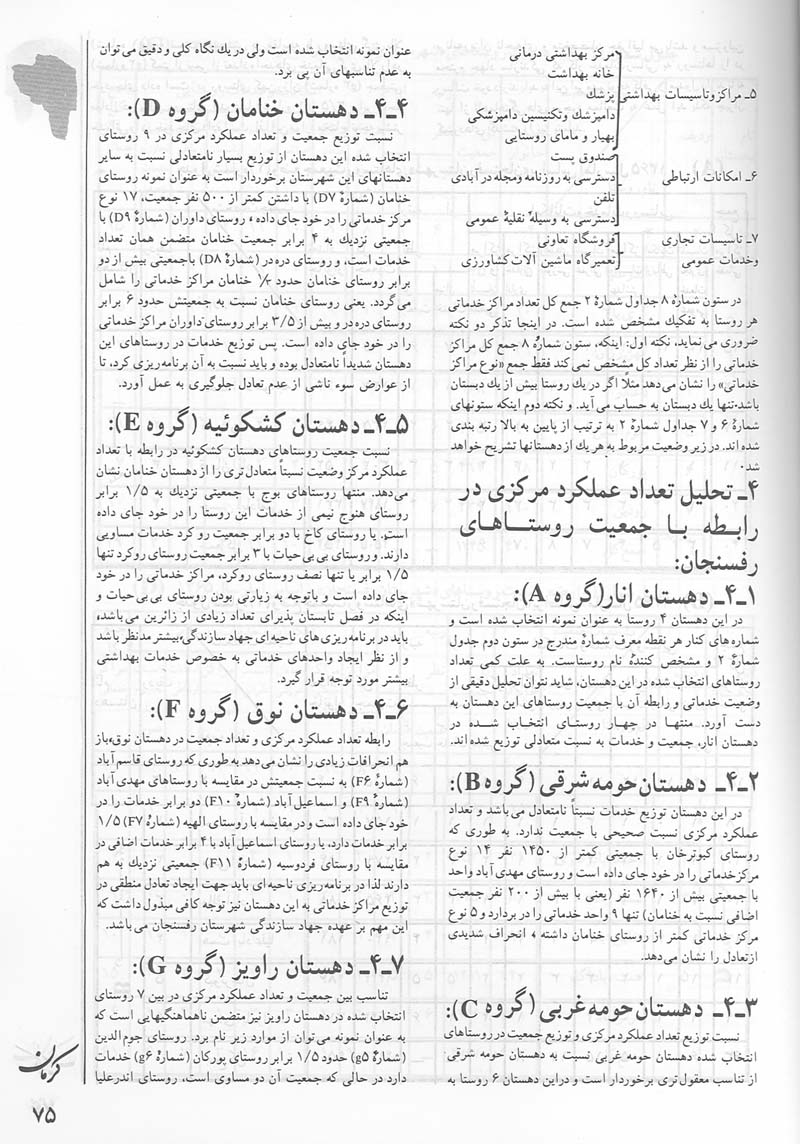 مرکز بهداشتی درمانی
خانه بهداشت
۵ـ مراکز و تاسیسات بهداشتی پزشك
دامپزشك و تکنیسین دامپزشکی
بهیار و مامای روستایی
صندوق پست
۶ـ امکانات ارتباطی دسترسی به روزنامه و مجله در آبادی
تلفن
دسترسی به وسیلهٔ نقلیهٔ عمومی
۷ـ تاسیسات تجاری فروشگاه تعاونی
وخدمات عمومی تعمیرگاه ماشین آلات کشاورزی
در ستون شمارهٔ ۸ جداول شمارهٔ ۲ جمع کل تعداد مراکز خدماتی
هر روستا به تفکیك مشخص شده است. در اینجا تذکر دو نکته
ضروری می نماید، نکته اول: اینکه، ستون شمارهٔ ۸ جمع کل مراکز
خدماتی را از نظر تعداد کل مشخص نمی کند فقط جمع «نوع مراکز
خدماتی» را نشان می‌دهد مثلاً اگر در یك روستا بیش از یك دبستان
باشد، تنها یك دبستان به حساب می آید. و نکته دوم اینکه ستونهای
شمارهٔ ۶ و ۷ جداول شمارهٔ ۲ به ترتیب از پایین به بالا رتبه بندی
شده اند. در زیر وضعیت مربوط به هر یك از دهستانها تشریح خواهد
شد.
۴ـ تحلیل تعداد عملکرد مرکزی در
رابـطه بـا جمعیت روستـاهـای
رفسنجان:
۱ـ۴ـ دهستان انار(گروه A):
در این دهستان ۴ روستا به عنوان نمونه انتخاب شده است و
شماره های کنار هر نقطه معرف شمارهٔ مندرج در ستون دوم جدول
شمارهٔ ۲ و مشخص کنندهٔ نام روستاست. به علت کمی تعداد
روستاهای انتخاب شده در این دهستان، شاید نتوان تحلیل دقیقی از
وضعیت خدماتی و رابطه آن با جمعیت روستاهای این دهستان به
دست آورد. منتهـا در چهار روستـای انتخـاب شـده در
دهستان انار، جمعیت و خدمات به نسبت متعادلی توزیع شده اند.
۲ـ۴ـ دهستان حومه شرقی (گروه B):
در این دهستان توزیع خدمات نسبتاً نامتعادل می باشد و تعداد
عملکرد مرکزی نسبت صحیحی با جمعیت ندارد. به طوری که
روستای کبوترخان با جمعیتی کمتر از ۱۴۵۰ نفر ۱۴ نوع
مرکز خدماتی را در خود جای داده است و روستای مهدی آباد واحد
با جمعیتی بیش از ۱۶۴۰ نفر (یعنی با بیش از ۲۰۰ نفر جمعیت
اضافی نسبت به خنامان) تنها ۹ واحد خدماتی را در بردارد و ۵ نوع
مرکز خدماتی کمتر از روستای خنامان داشته، انحراف شدیدی
از تعادل را نشان می دهد.
۳ـ۴ـ دهستان حومه غربی (گروه C):
نسبت توزیع تعداد عملکرد مرکزی و توزیع جمعیت در روستاهای
انتخاب شده دهستان حومه غربی نسبت به دهستان حومه شرقی
از تناسب معقول تری برخوردار است و در این دهستان ۶ روستا به
عنوان نمونه انتخاب شده است ولی در یك نگاه کلی و دقیق می توان
به عدم تناسبهای آن پی برد.
۴ـ۴ـ دهستان خنامان (گروه D):
نسبت توزیع جمعیت و تعداد عملکرد مرکزی در ۹ روستای
انتخاب شده این دهستان از توزیع بسیار نامتعادلی نسبت به سایر
دهستانهای این شهرستان برخوردار است به عنوان نمونه روستای
خنامان (شمارهٔ D۷) با داشتن کمتر از ۵۰۰ نفر جمعیت، ۱۷ نوع
مرکز خدماتی را در خود جای داده، روستای داوران (شمارهٔ D۹) با
جمعیتی نزدیك به ۴ برابر جمعیت خنامان متضمن همان تعداد
خدمات است، و روستای دره در (شمارهٔ D۸) باجمعیتی بیش از دو
برابر روستای خنامان حدود خنامان مراکز خدماتی را شامل
می گردد. یعنی روستای خنامان نسبت به جمعیتش حدود ۶ برابر
روستای دره در و بیش از ۳/۵ برابر روستای داوران مراکز خدماتی
را در خود جای داده است. پس توزیع خدمات در روستاهای این
دهستان شدیداً نامتعادل بوده و باید نسبت به آن برنامه ریزی کرد، تا
از عوارض سوء ناشی از عدم تعادل جلوگیری به عمل آورد.
۵ـ۴ـ دهستان کشکوئیه (گروه E):
نسبت جمعیت روستاهای دهستان کشکوئیه در رابطه با تعداد
عملکرد مرکز وضعیت نسبتاً متعادل تری را از دهستان خنامان نشان
می دهد. منتها روستاهای بوج با جمعیتی نزدیك به ۱/۵ برابر
روستای هنوج نیمی از خدمات این روستا را در خود جای داده
است. یا روستای کاخ با دو برابر جمعیت رو کرد خدمات مساویی
دارند. و روستای بی بی حیات با ۳ برابر جمعیت روستای روکرد تنها
۱/۵ برابر یا تنها نصف روستای روکرد، مراکز خدماتی را در خود
جای داده است و باتوجه به زیارتی بودن روستای بی بی حیات و
اینکه در فصل تابستان پذیرای تعداد زیادی از زائرین می باشد،
باید در برنامه ریزی های ناحیه ای جهاد سازندگی، بیشتر مدنظر باشد
و از نظر ایجاد واحدهای خدماتی به خصوص خدمات بهداشتی
بیشتر مورد توجه قرار گیرد.
۶ـ۴ـ دهستان نوق (گروه F):
رابطه تعداد عملکرد مرکزی و تعداد جمعیت در دهستان نوق، باز
هم انحرافات زیادی را نشان می دهد به طوری که روستای قاسم آباد
(شمارهٔ F۶) به نسبت جمعیتش در مقایسه با روستاهای مهدی آباد
(شمارهٔ F۹) و اسماعیل آباد (شمارهٔ F۱۰) دو برابر خدمات را در
خود جای داده است و در مقایسه با روستای الهیه (شمارهٔ F۷) ۱/۵
برابر خدمات دارد، یا روستای اسماعیل آباد با ۴ برابر خدمات اضافی در
مقایسه با روستای فردوسیه (شمارهٔ F۱۱) جمعیتی نزدیك به هم
دارند لذا در برنامه ریزی ناحیه ای باید جهت ایجاد تعادل منطقی در
توزیع مراکز خدماتی به این دهستان نیز توجه کافی مبذول داشت که
این مهم بر عهده جهاد سازندگی شهرستان رفسنجان می باشد.
۷ـ۴ـ دهستان راویز (گروه G):
تناسب بین جمعیت و تعداد عملکرد مرکزی در بین ۷ روستای
انتخاب شده در دهستان راویز نیز متضمن ناهماهنگیهایی است که
به عنوان نمونه می توان از موارد زیر نام برد. روستای جوم الدین
(شمارهٔ g۵) حدود ۱/۵ برابر روستای پورکان (شمارهٔ g۶) خدمات
دارد در حالی که جمعیت آن دو مساوی است، روستای اندرعلیا
کرمان
۷۵